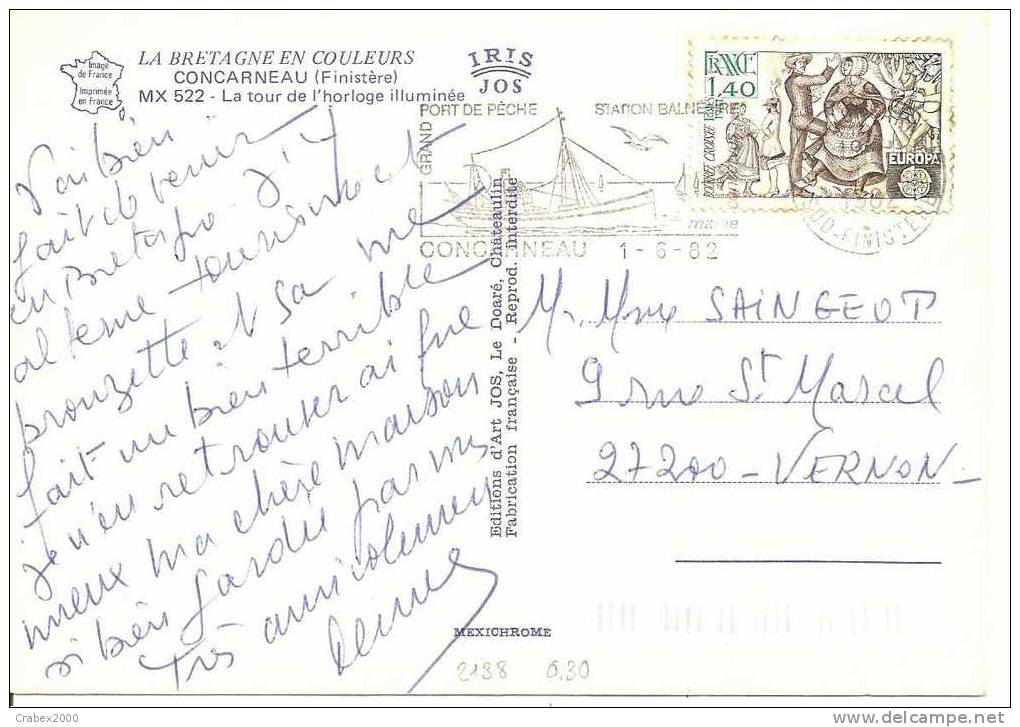 Image
de France
Imprimée
en France
LA BRETAGNE EN COULEURS
CONCARNEAU (Finistère)
MX 522 - La tour de l'horloge illuminée
IRIS
JOS
GRAND
PORT DE PÊCHE
STATION BALNÉAIRE
CONCARNEAU
1-6-82
FRANCE
1,40
EUROPA
FINISTE
J'ai bien
fait de venir
en Bretagne
bronzette
fait un bien terrible
je n'en retrouverai que
mieux ma chère maison
si bien gardée par vous
Très amicalement
Editions d'Art JOS, Le Doaré, Châteaulin
Fabrication française - Reprod. interdite
M. Mme SAINGEOT
9 rue St Marcel
27200 - VERNON -
MEXICHROME
2138 0.30
Crabex2000
www.delcampe.net